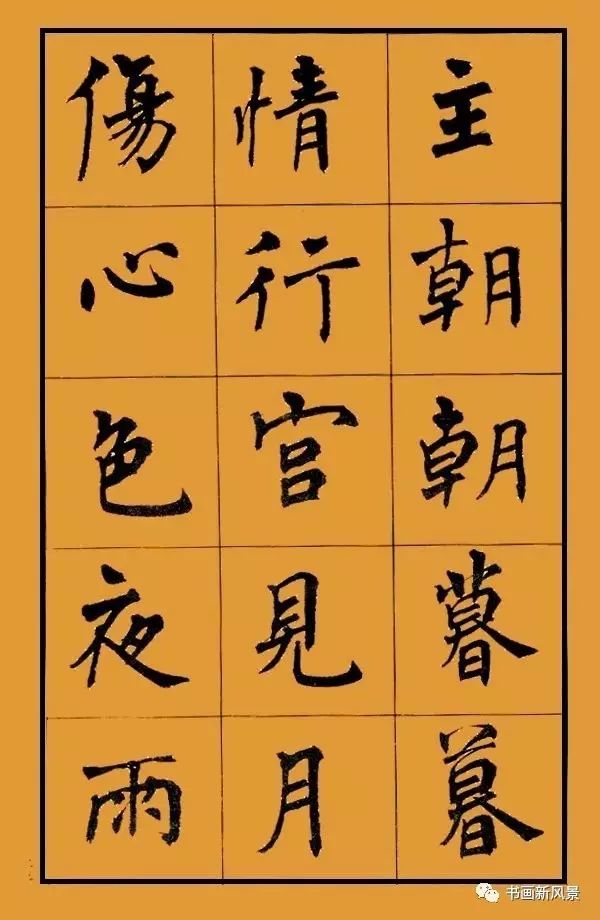 主朝朝暮暮
情行宫見月
傷心色夜雨
书画新风景